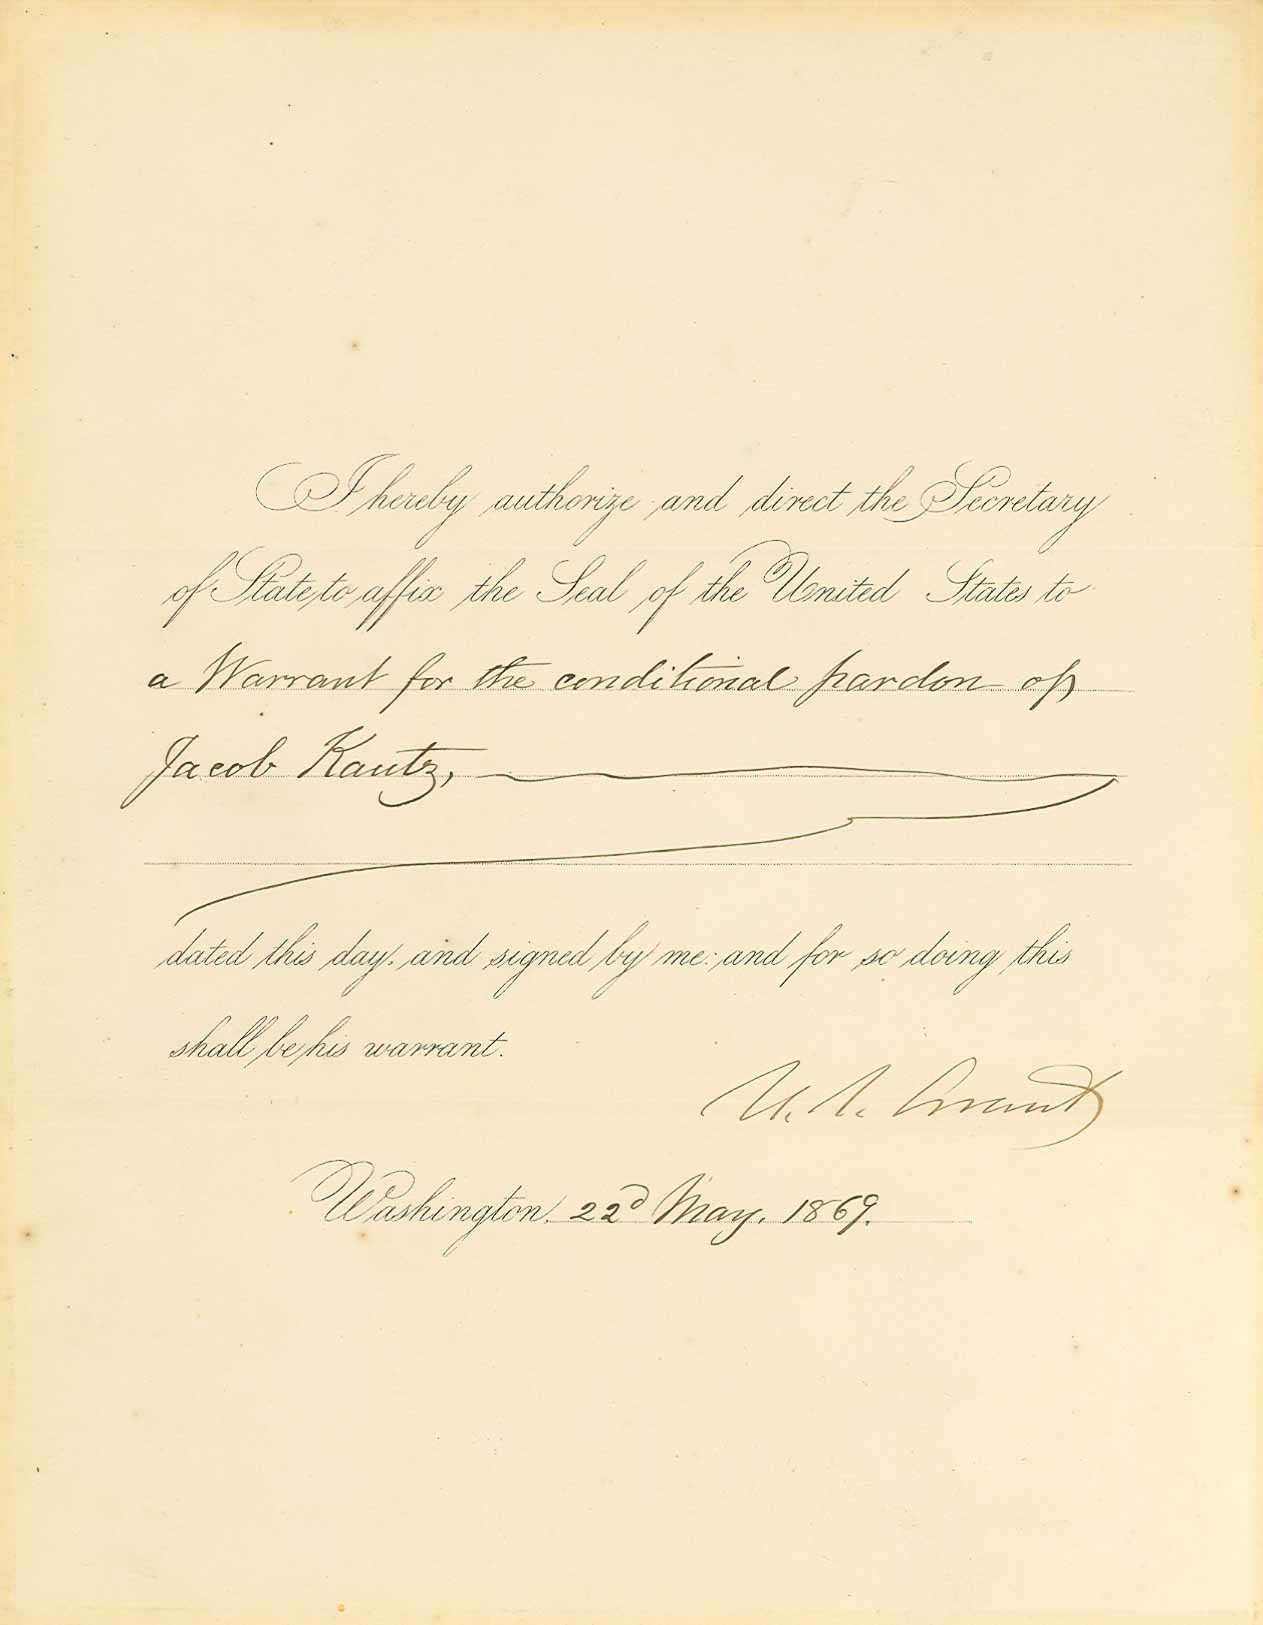 I hereby authorize and direct the Secretary
of State to affix the Seal of the United States to
a Warrant for the conditional pardon of
Jacob Kautz,
dated this day, and signed by me: and for so doing this
shall be his warrant.
U. S. Grant
Washington, 22d May, 1869.